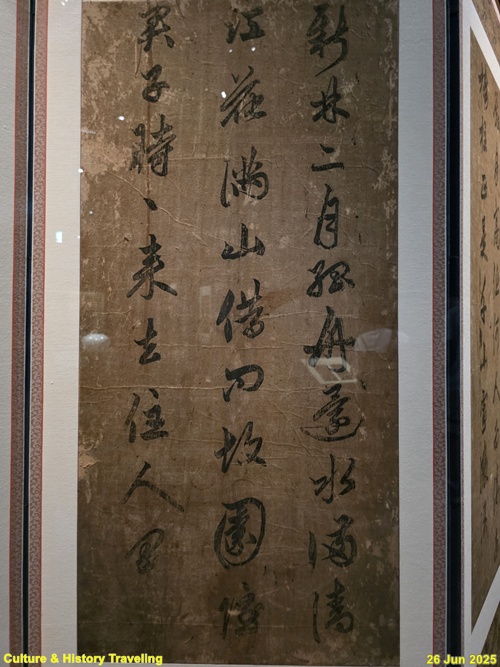 新林二月孤舟還水滿清
江花滿山借問故園隱
君子時〻來去住人間
Culture & History Traveling
26 Jun 2025